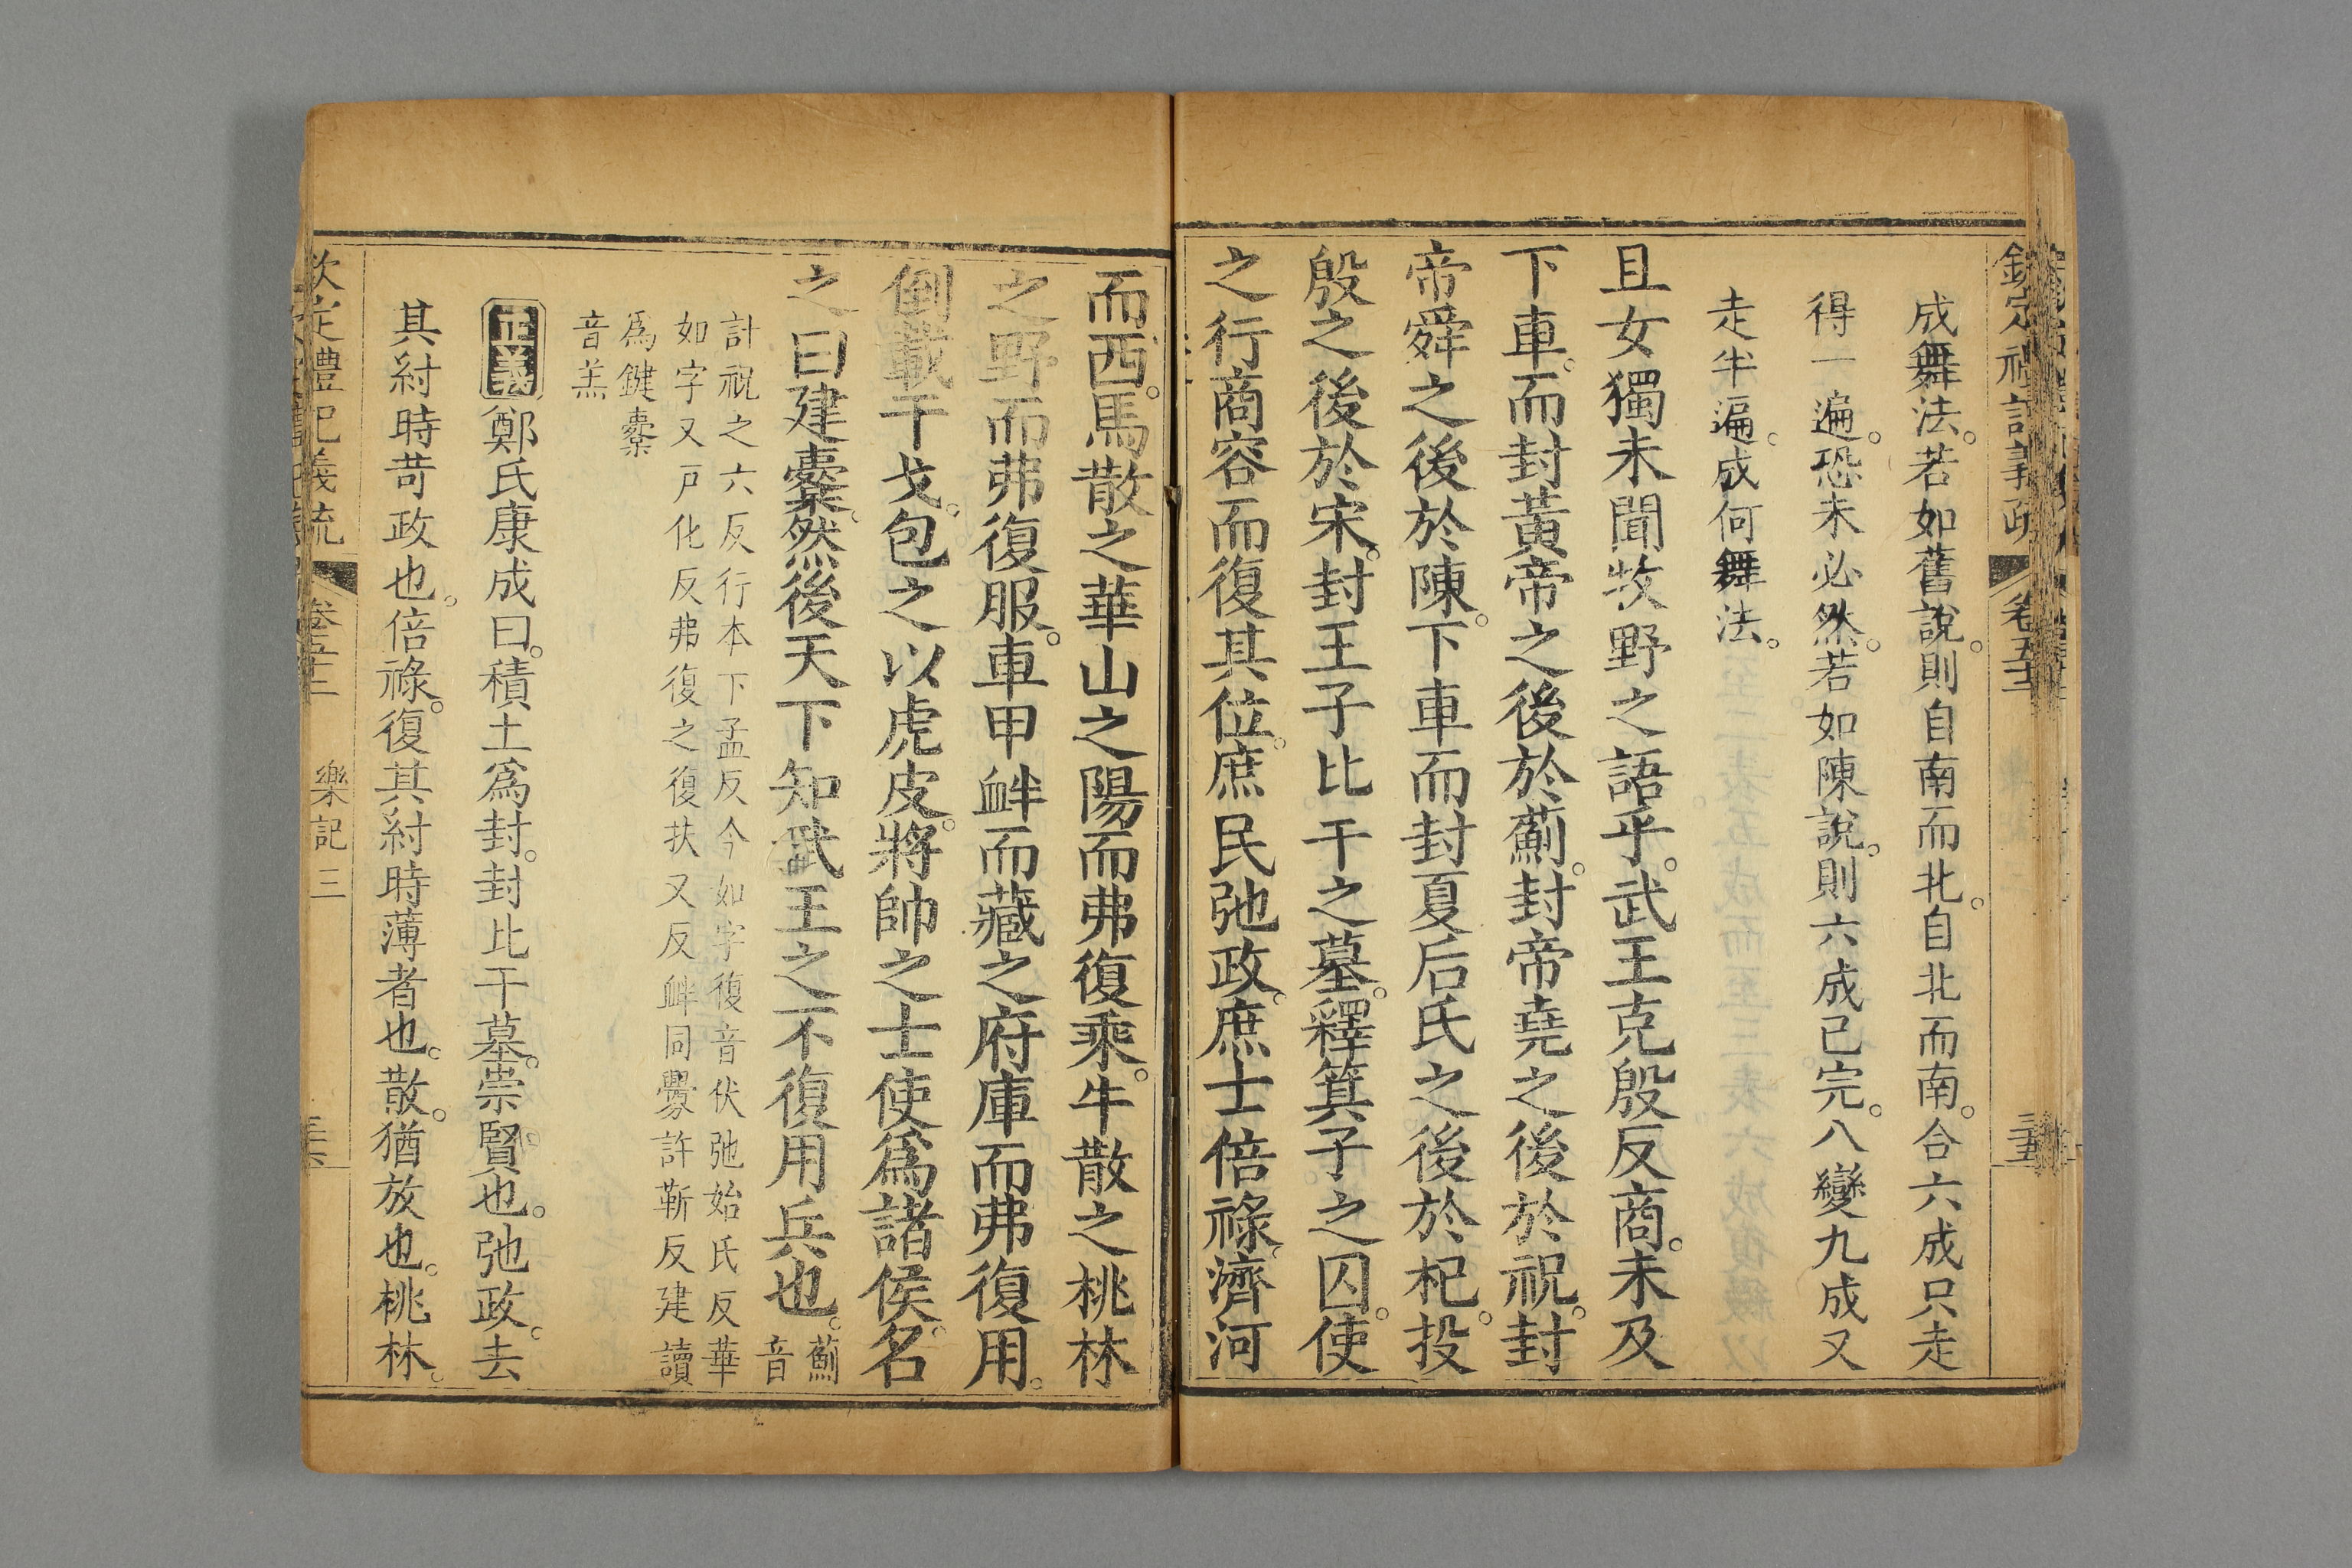 成舞法。若如舊說。則自南而北。自北而南。合六成只走
得一遍。恐未必然。若如陳說。則六成已完。八變九成又
走半遍。成何舞法。
且女獨未聞牧野之語乎。武王克殷反商。未及
下車。而封黃帝之後於薊。封帝堯之後於祝。封
帝舜之後於陳。下車而封夏后氏之後於杞。投
殷之後於宋。封王子比干之墓。釋箕子之囚。使
之行商容而復其位。庶民弛政。庶士倍祿。濟河
而西。馬散之華山之陽而弗復乘。牛散之桃林
之野而弗復服。車甲衅而藏之府庫而弗復用。
倒載干戈。包之以虎皮。將帥之士使爲諸侯。名
之曰建櫜。然後天下知武王之不復用兵也。薊
音
計祝之六反行本下孟反今如字復音伏弛始氏反華
如字又戶化反弗復之復扶又反衅同釁許靳反建讀
爲鍵櫜
音羔
正義 鄭氏康成曰。積土爲封。封比干墓。崇賢也。弛政。去
其紂時苛政也。倍祿。復其紂時薄者也。散。猶放也。桃林。
欽定禮記義疏 卷五十二 樂記三